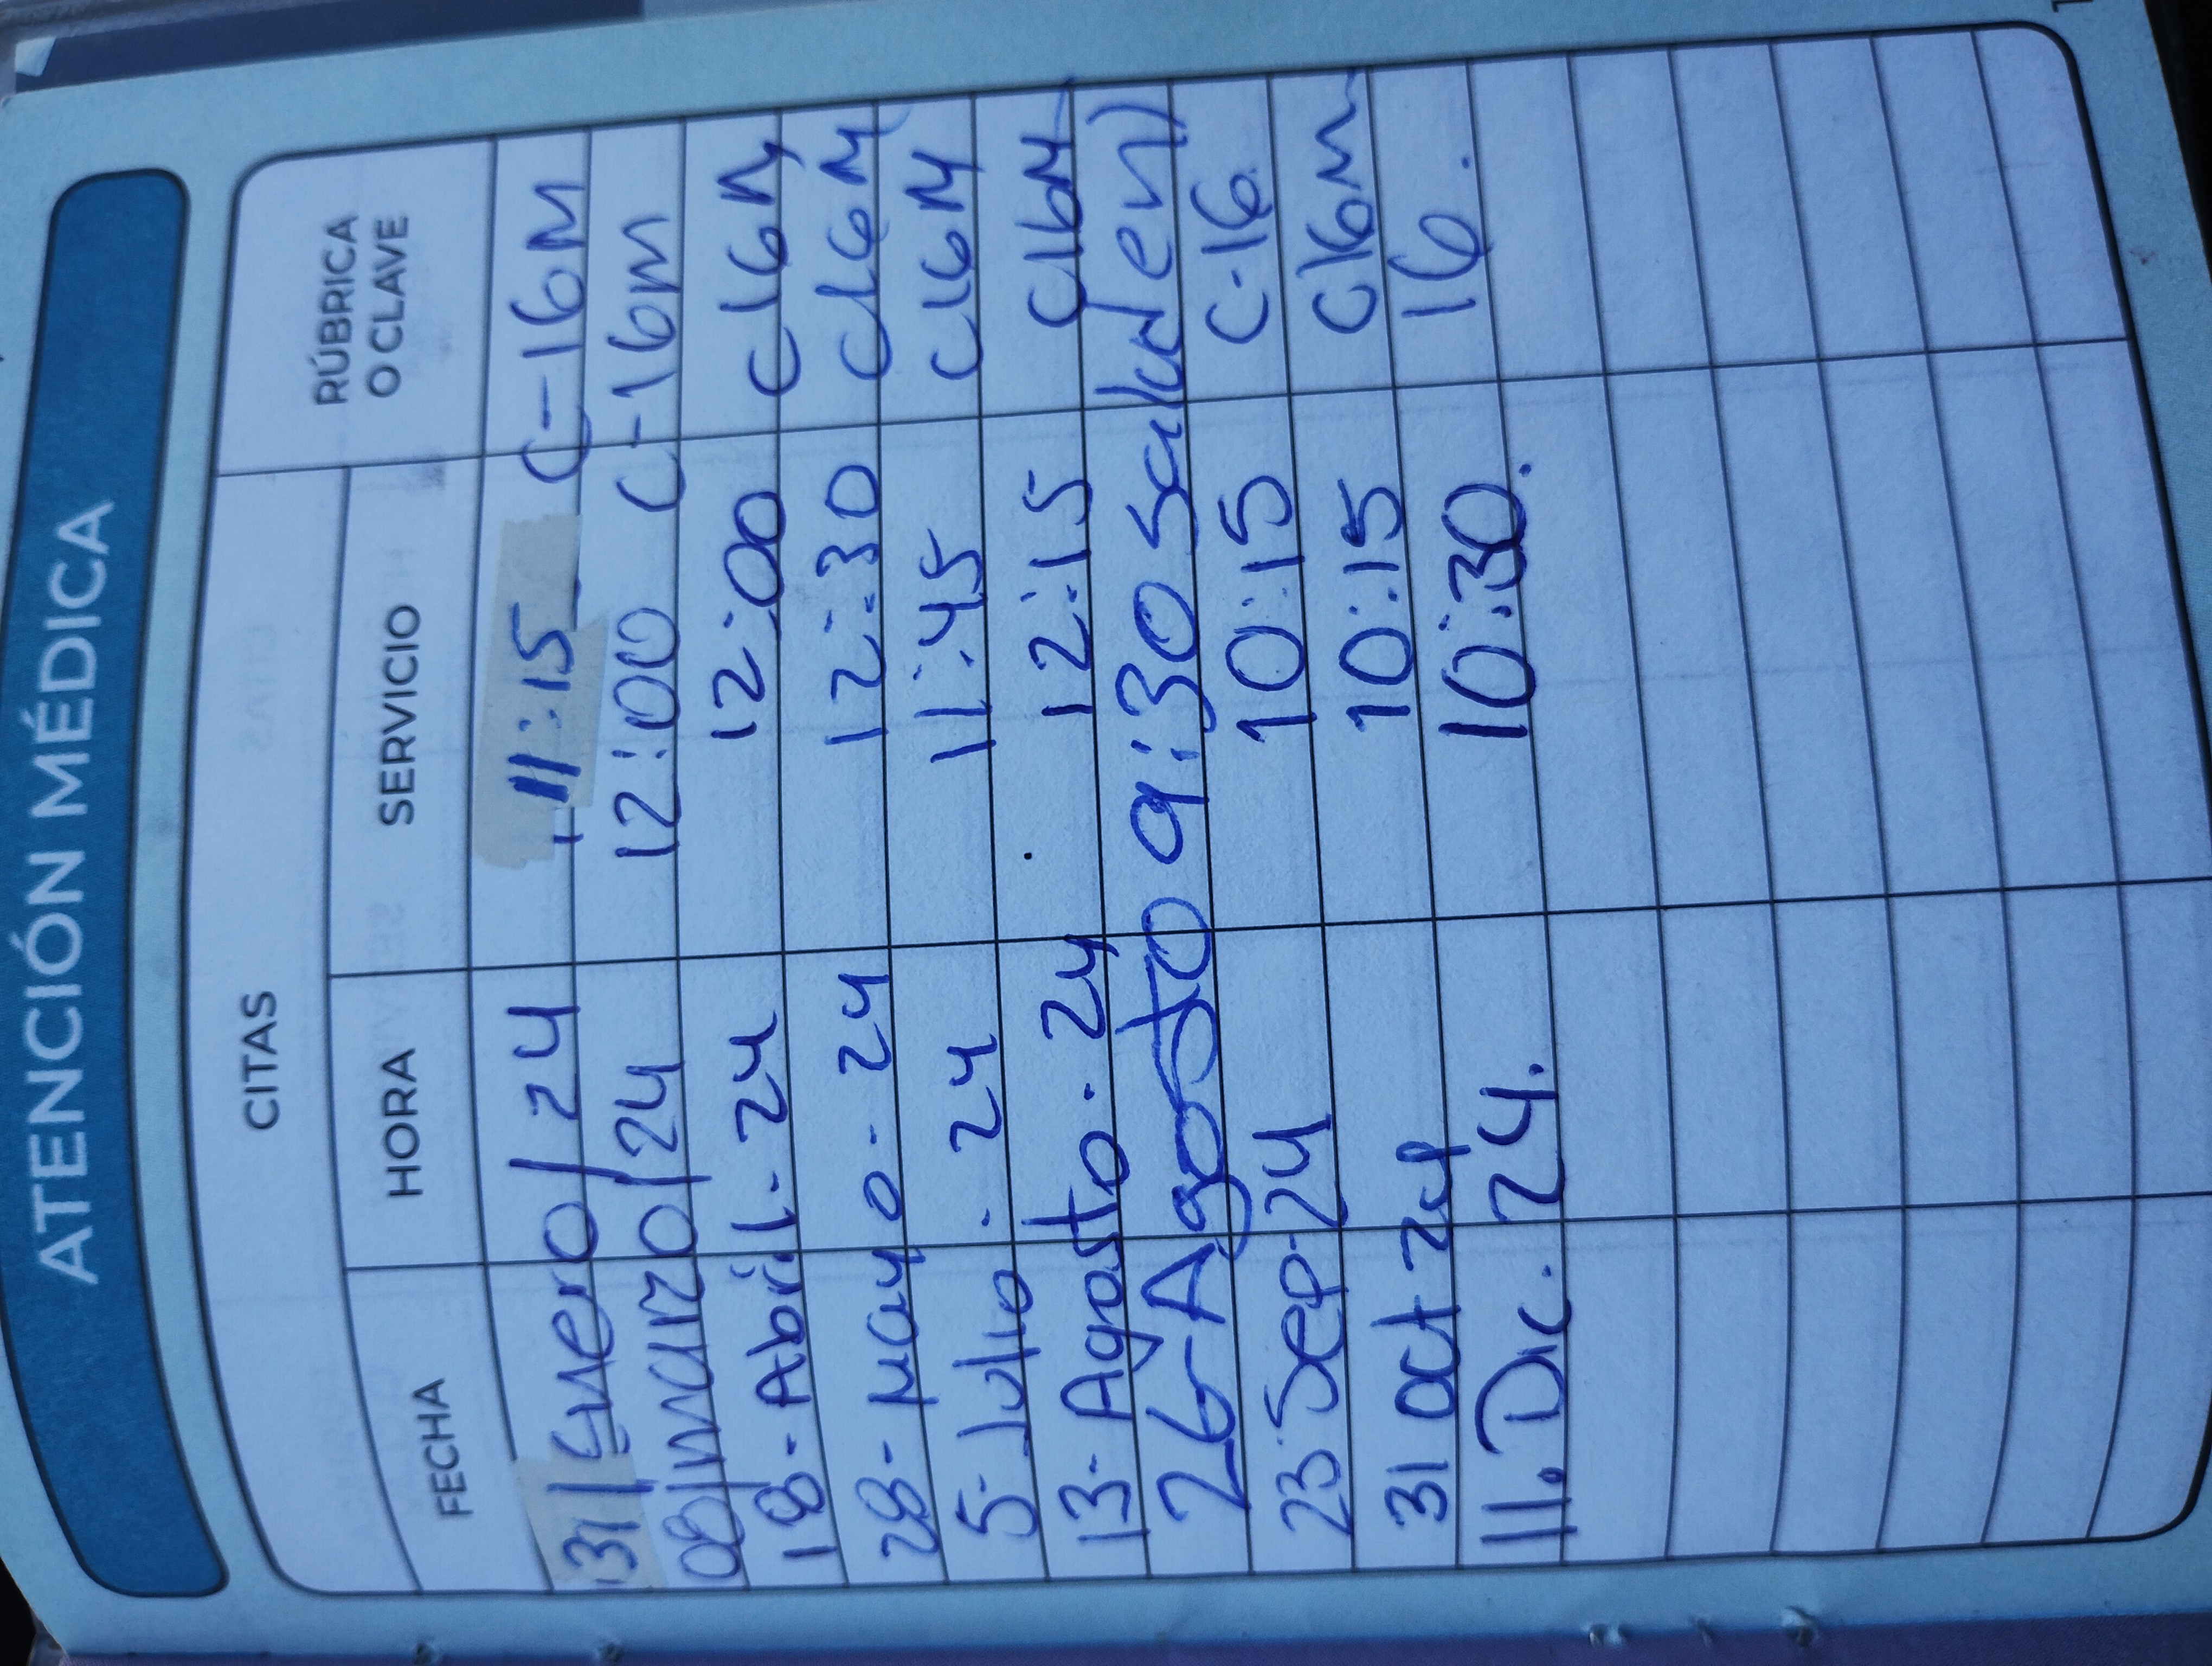 ATENCIÓN MÉDICA
CITAS
RÚBRICA O CLAVE
FECHA HORA SERVICIO
31/Enero/24 11:15 C-16M
08/marzo/24 12:00 C-16m
18-Abril-24 12:00 C16M
28-Mayo-24 12:30 C16M
5-Julio-24 11:45 C16M
13-Agosto-24 12:15 C16M
26-Agosto 9:30 Salud
23 Sep-24 10:15 C-16
31 oct 24 10:15 C16m
11. Dic. 24. 10:30. 16.